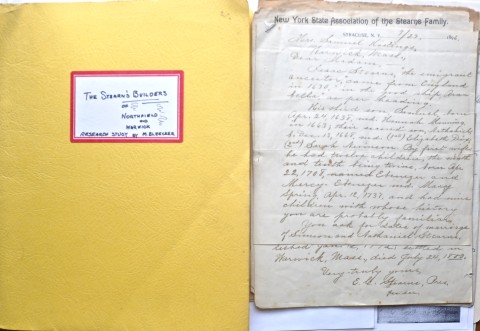 THE STEARN'S BUILDERS
OF
NORTHFIELD
AND
WARWICK
RESEARCH STUDY BY M. BLEECKER
New York State Association of the Stearns Family.
SYRACUSE, N. Y.
Warwick, Mass.
Dear Madam:
Isaac Stearns, the emigrant
ancestor, came from England
in 1630, in the good ship
His third son Samuel born
Apr. 24, 1638, md. Hannah Manning
in 1663; their second son Nathaniel
b. Dec. 13, 1668 md. (1st) Elizabeth Dix,
(2nd) Sarah. By first wife
he had twelve children, the ninth
and tenth being twins, born Apr.
22, 1708, named Ebenezer and
Mercy. Ebenezer md. Mary
Spring, Apr. 12, 1733, and had nine
children with whose history
you are probably familiar.
You ask for dates of marriage
of Simeon and Nathaniel Stearns,
settled in
Warwick, Mass, died July 24,
Very truly yours,
E. Stearns, Pres.